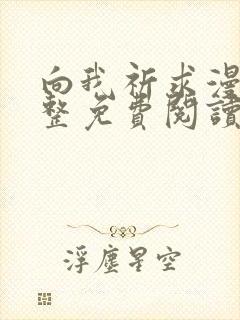 向我祈求漫
整免費閱讀
浮塵星空